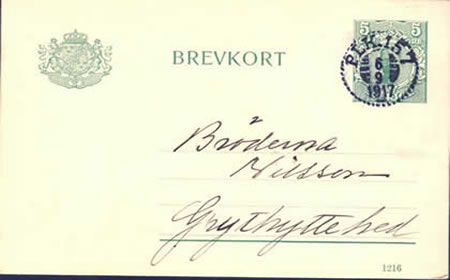 BREVKORT
5 5
PLK.157
6
9
1917
Bröderna
Nilsson
Grythyttehed
1216